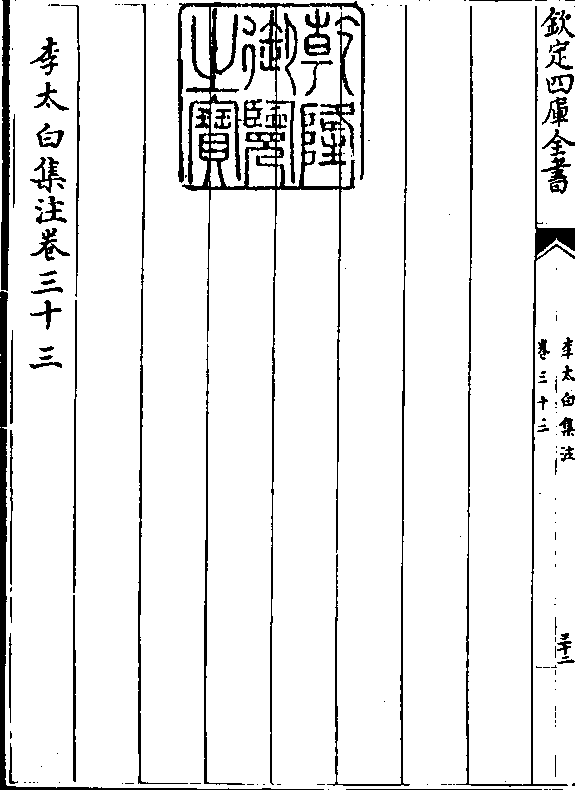 欽定四庫全書
李太白集注
卷三十三
三十二
乾隆
御覽
之寶
李太白集注卷三十三